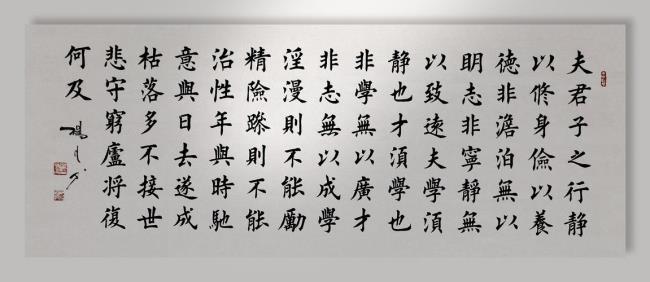 夫君子之行静
以修身儉以養
德非澹泊無以
明志非寧静無
以致遠夫學湏
静也才湏學也
非學無以廣才
非志無以成學
淫漫則不能勵
精險躁則不能
治性年與時馳
意與日去遂成
枯落多不接世
悲守窮廬將復
何及